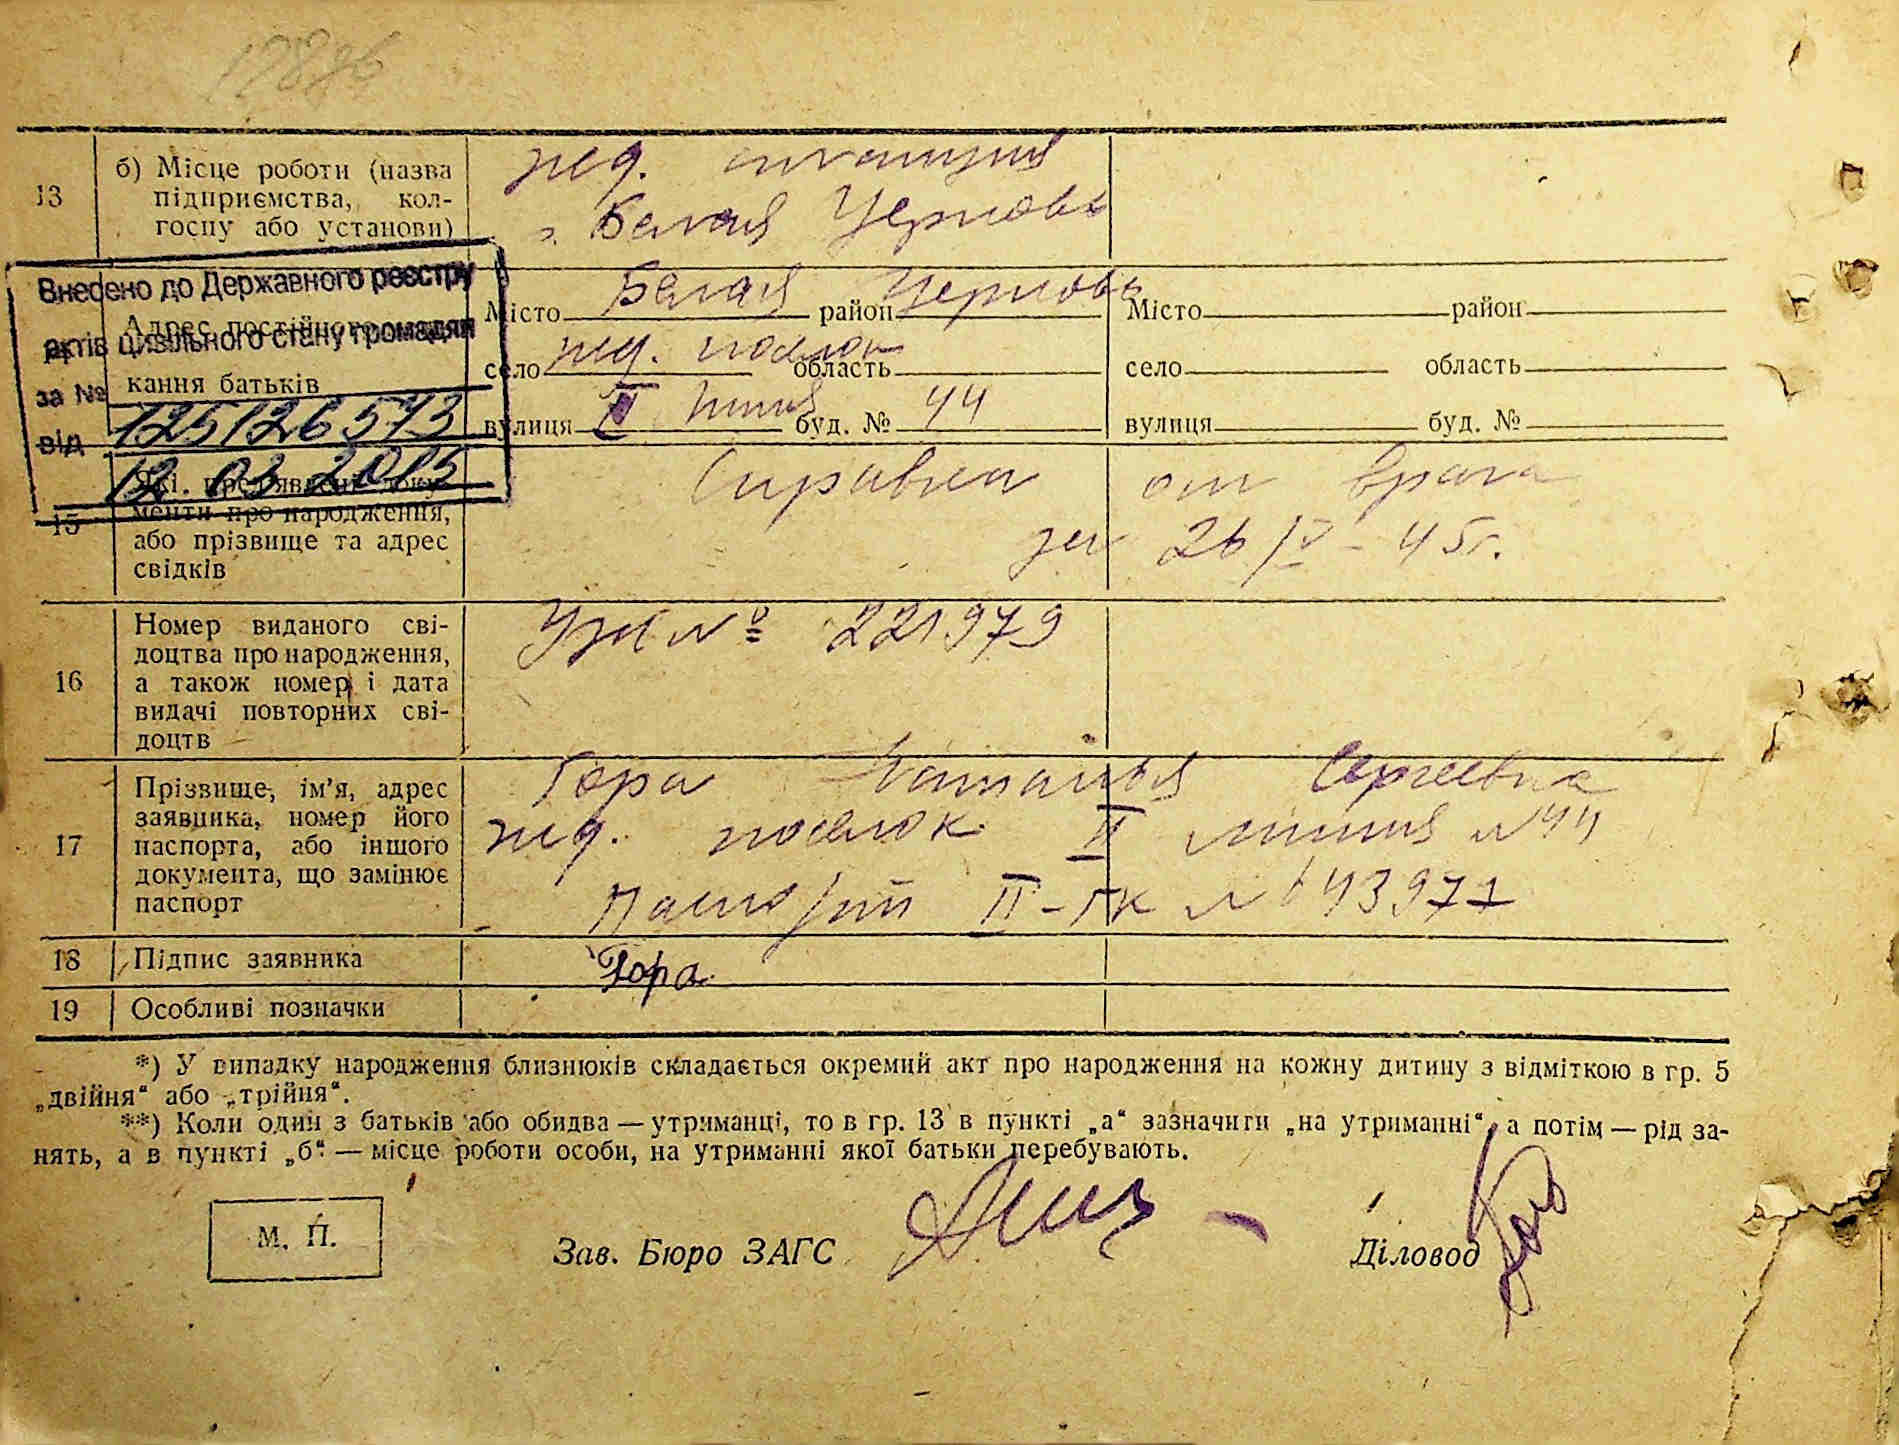 13
б) Місце роботи (назва
підприємства, кол-
госпу або установи)
жед. станция
г. Белая Церковь
Внесено до Державного реєстру
актів цивільного стану громадян
за № 125126573
від 12 03 2015
Адрес постійного
кання батьків
Місто Белая район Церковь
село жед. поселок область
вулиця II линия буд. № 44
Місто район
село область
вулиця буд. №
15
Які пред'явлені доку-
менти про народження,
або прізвище та адрес
свідків
Справка от врача
за 26/V - 45г.
16
Номер виданого сві-
доцтва про народження,
а також номер і дата
видачі повторних сві-
доцтв
№ 221979
17
Прізвище, ім'я, адрес
заявника, номер його
паспорта, або іншого
документа, що замінює
паспорт
Гора Наталья Сергеевна
жед. поселок II линия №44
Паспорт II-ГК № 643977
18
Підпис заявника
Гора
19
Особливі позначки
*) У випадку народження близнюків складається окремий акт про народження на кожну дитину з відміткою в гр. 5
„двійня“ або „трійня“.
**) Коли один з батьків або обидва — утриманці, то в гр. 13 в пункті „а“ зазначити „на утриманні“, а потім — рід за-
нять, а в пункті „б“ — місце роботи особи, на утриманні якої батьки перебувають.
М. П.
Зав. Бюро ЗАГС
Діловод